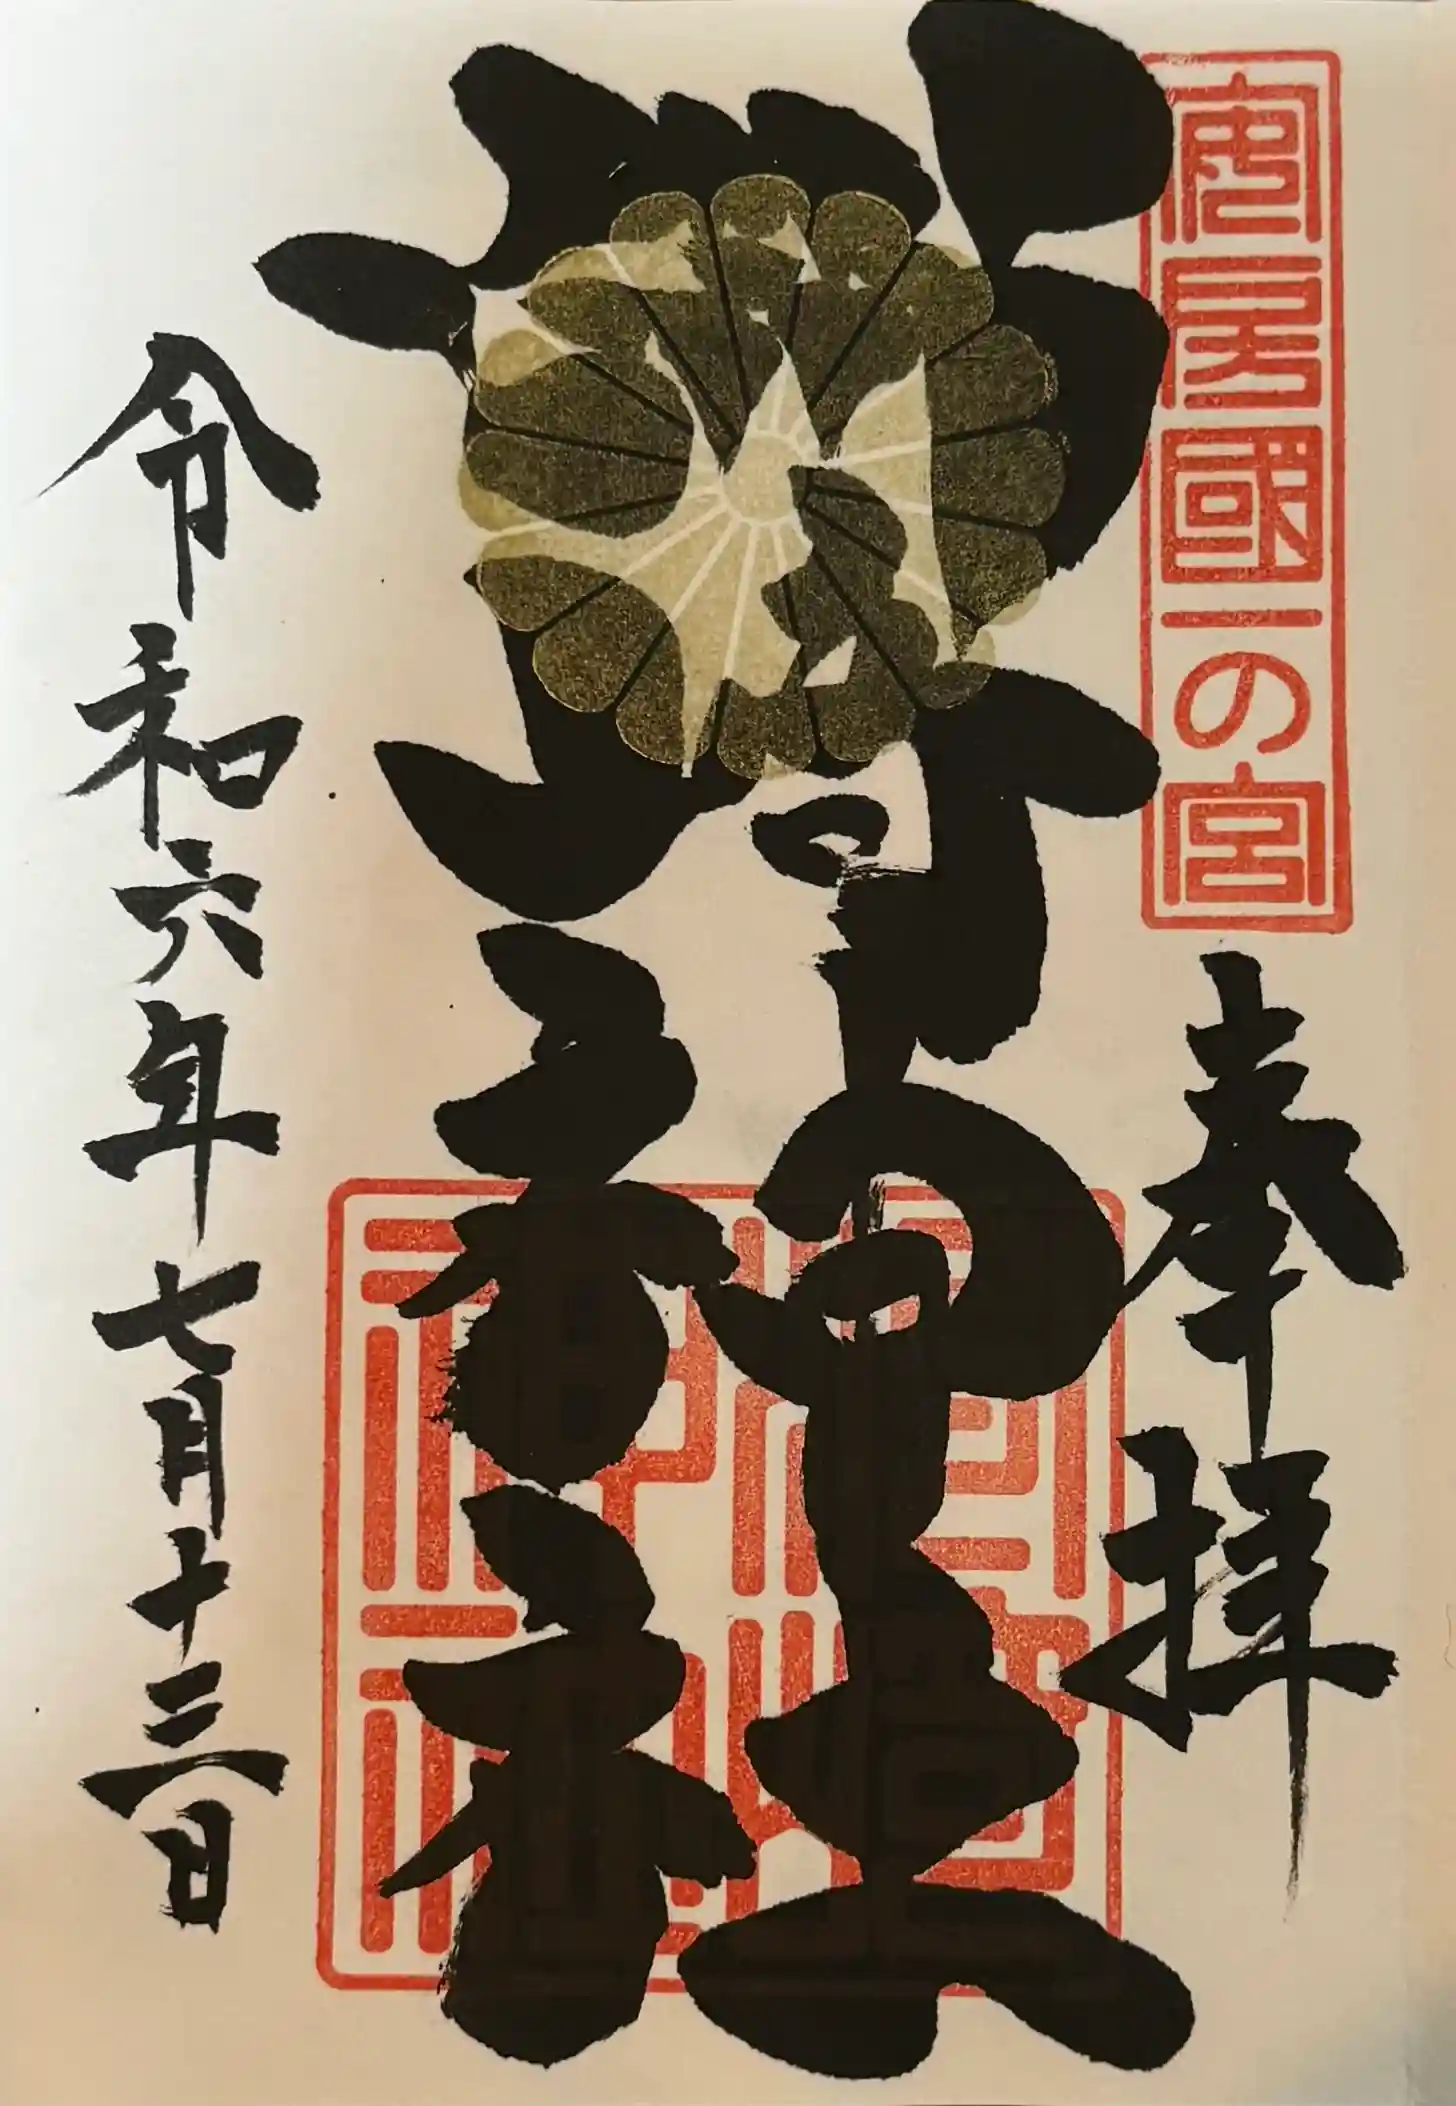 安房國一の宮
奉拝
洲崎神社
令和六年七月十三日